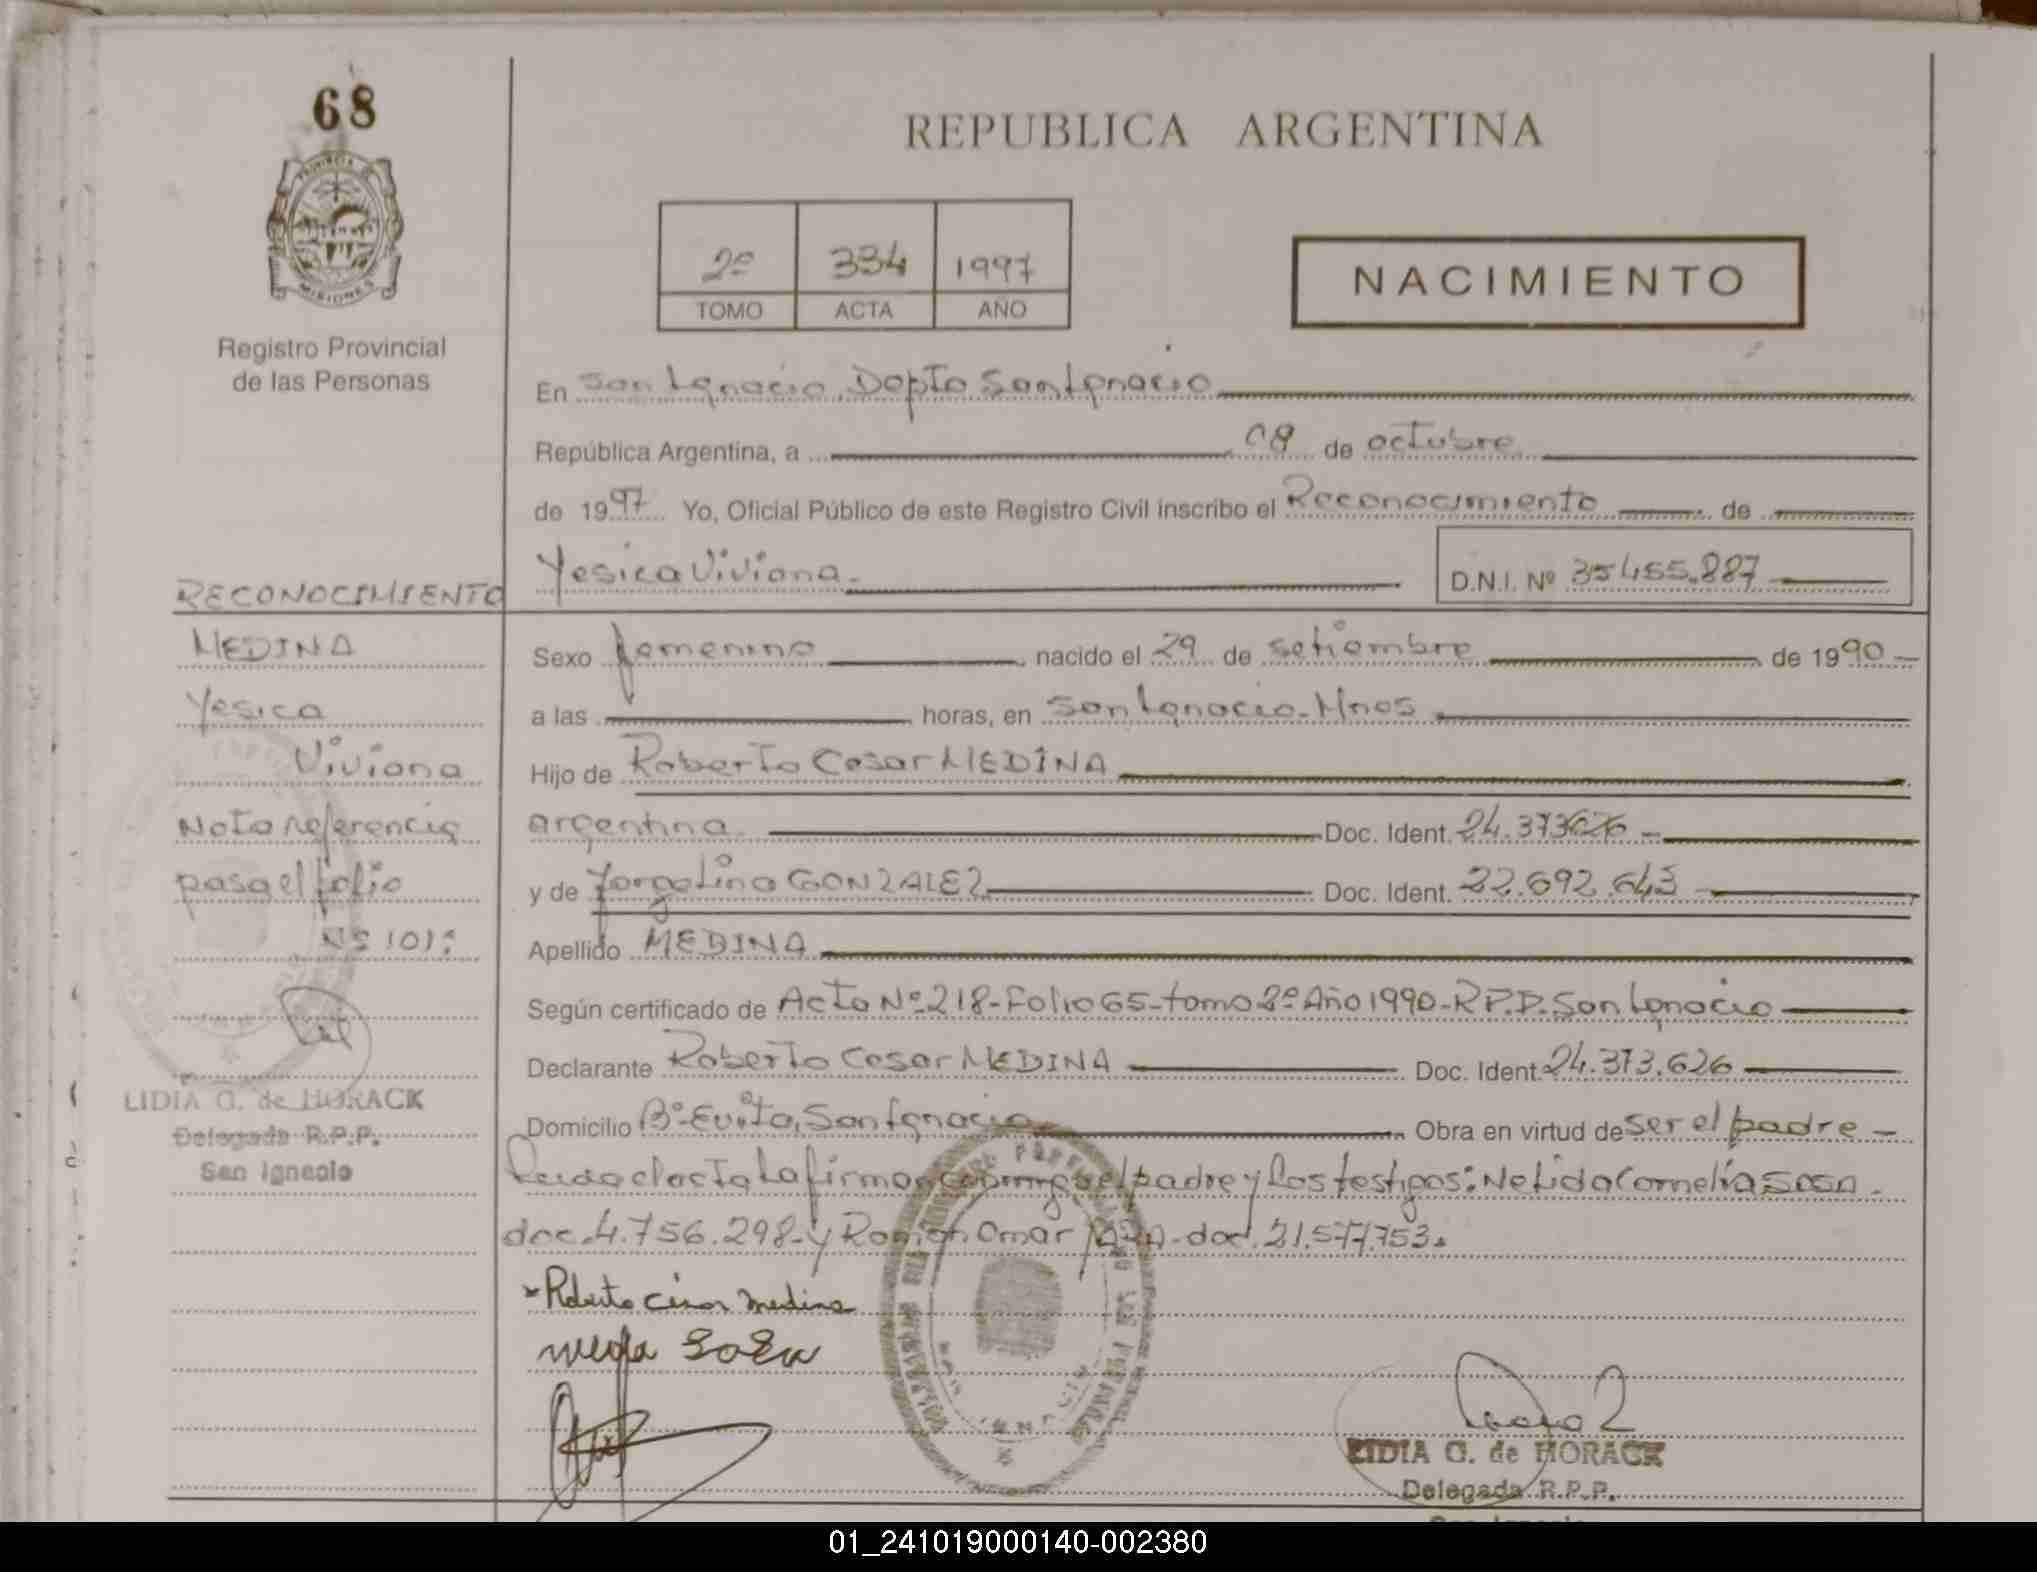 68
PROVINCIA DE
MISIONES
Registro Provincial
de las Personas
REPUBLICA ARGENTINA
2º 334 1997
TOMO ACTA AÑO
NACIMIENTO
En San Ignacio, Dopto San Ignacio
República Argentina, a 08 de octubre
de 1997 Yo, Oficial Público de este Registro Civil inscribo el Reconocimiento de
Yesica Viviana.
D.N.I. Nº 35455.887
RECONOCIMIENTO
MEDINA
Yesica
Viviana
Nota referencia
pasa el folio
Nº 101:
LIDIA G. de HORACK
Delegada R.P.P.
San Ignacio
Sexo femenino nacido el 29 de setiembre de 1990
a las horas, en San Ignacio-Mnes
Hijo de Roberto Cesar MEDINA
argentina Doc. Ident. 24.373626
y de Jorgelina GONZALEZ Doc. Ident. 22.692.643
Apellido MEDINA
Según certificado de Acta Nº 218-Folio 65-tomo 2º Año 1990-R.P.P. San Ignacio
Declarante Roberto Cesar MEDINA Doc. Ident. 24.373.626
Domicilio Bº Evita, San Ignacio Obra en virtud de ser el padre
Leida el acta la firman el padre y los testigos: Nelida Cornelia SOSA.
doc. 4.756.298-y Ramon Omar doc. 21.577.753.
Roberto Cesar Medina
Sosa
LIDIA G. de HORACK
Delegada R.P.P.
San Ignacio
01_241019000140-002380